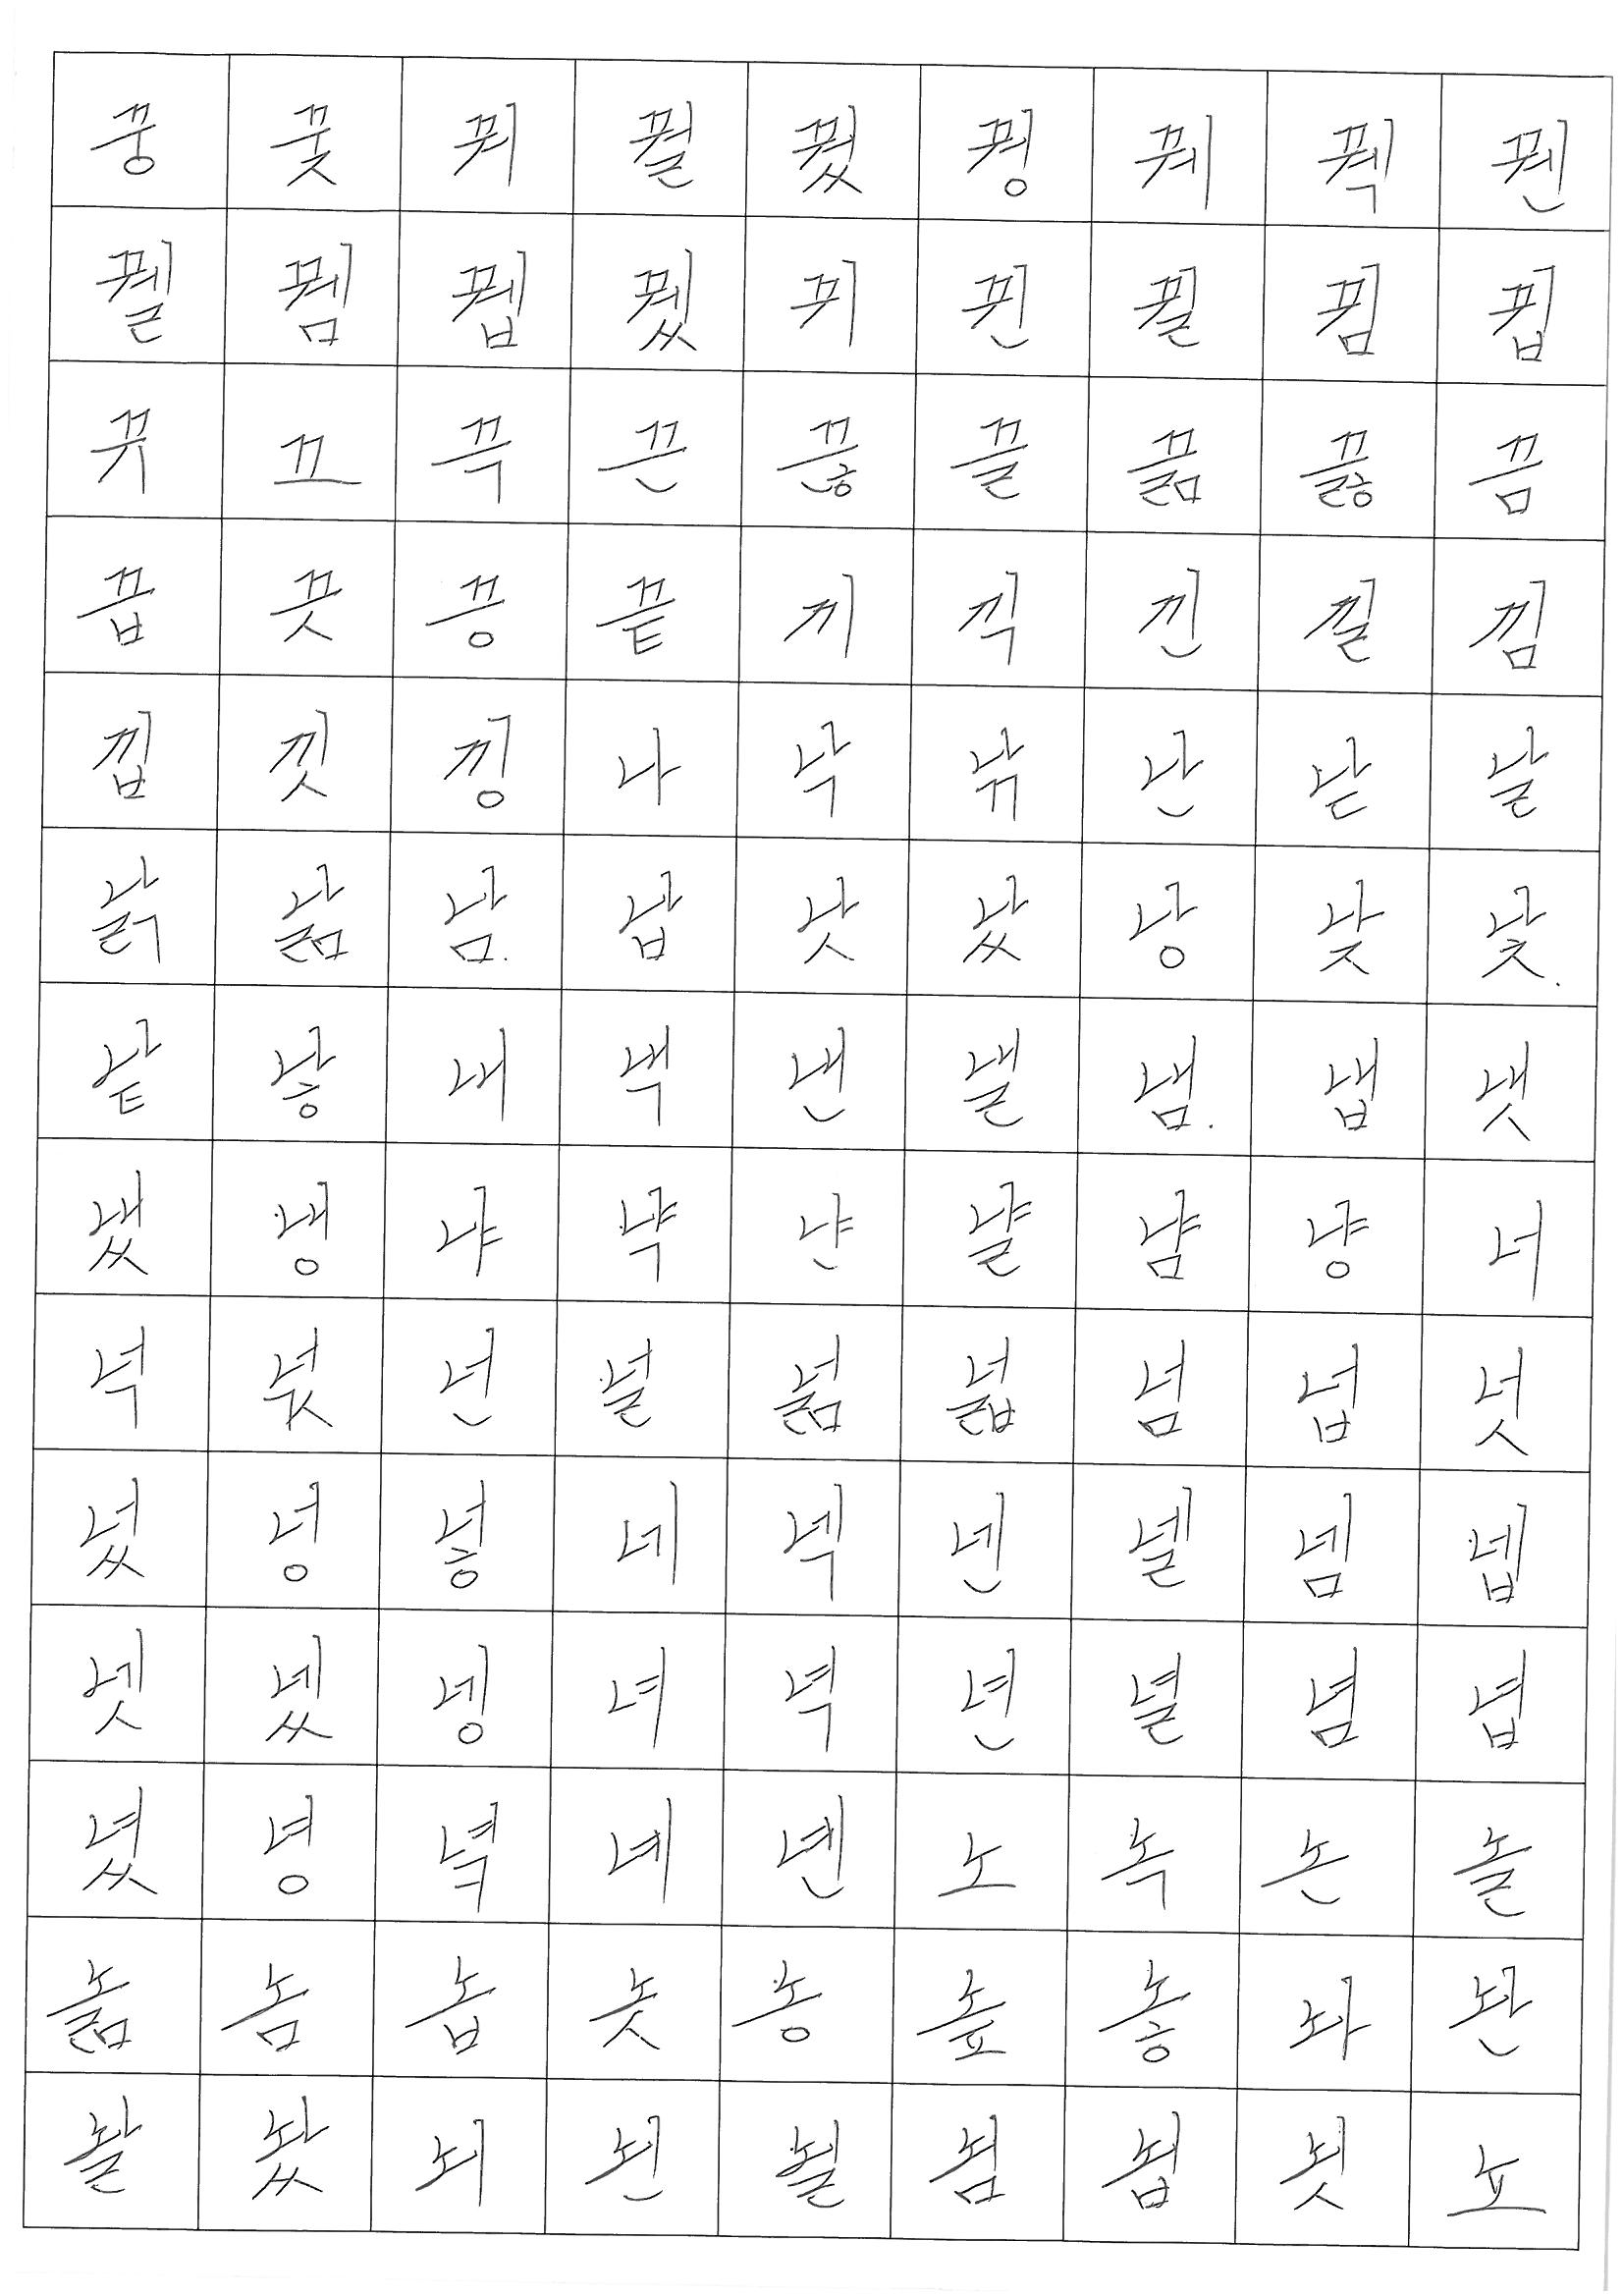 꿍 꿎 꿔 꿜 꿨 꿩 꿰 꿱 꿴
꿸 뀀 뀁 뀄 뀌 뀐 뀔 뀜 뀝
뀨 끄 끅 끈 끊 끌 끎 끓 끔
끕 끗 끙 끝 끼 끽 낀 낄 낌
낍 낏 낑 나 낙 낚 난 낟 날
낡 낢 남. 납 낫 났 낭 낮 낯.
낱 낳 내 낵 낸 낼 냄. 냅 냇
냈 냉 냐 냑 냔 냘 냠 냥 너
넉 넋 넌 널 넒 넓 넘 넙 넛
넜 넝 넣 네 넥 넨 넬 넴 넵
넷 넸 넹 녀 녁 년 녈 념 녑
녔 녕 녘 녜 녠 노 녹 논 놀
놂 놈 놉 놋 농 높 놓 놔 놘
놜 놨 뇌 뇐 뇔 뇜 뇝 뇟 뇨